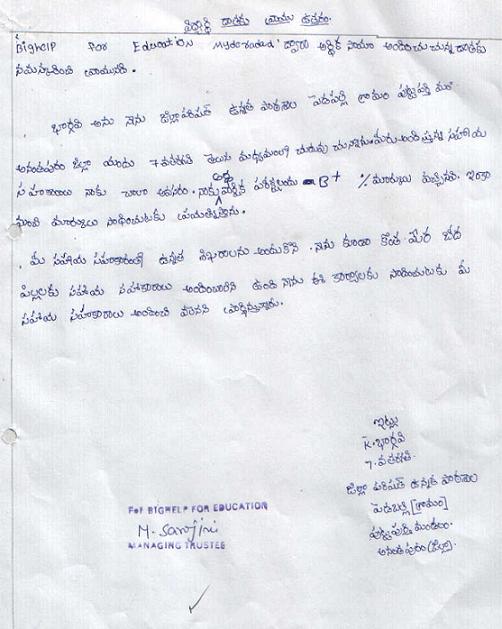 దాతకు వ్రాయు ఉత్తరం.
Bighelp For Education Hyderabad' ద్వారా ఆర్థిక సాయం అందించు చున్న దాతకు
నమస్కరించి వ్రాయునది.
భార్గవి అను నేను జిల్లాపరిషత్ ఉన్నత పాఠశాల పెదపల్లి గ్రామం పుట్టపర్తి మం॥
అనంతపురం జిల్లా యందు 7వతరగతి తెలుగు మధ్యమంలో చదువు చున్నాను. మీరు అందిస్తున్న సహాయ
సహకారాలు నాకు చాలా అవసరం. నాకు అర్ధ పరీక్షలయందు B+ % మార్కులు వచ్చినవి. ఇంకా
మంచి మార్కులు సాధించుటకు ప్రయత్నిస్తాను.
మీ సహాయ సహకారంతో ఉన్నత శిఖరాలను అందుకొని. నేను కూడా కొంత మేర బీద
పిల్లలకు సహాయ సహకారాలు అందించాలని ఉంది నేను ఈ కార్యాలకు సాధించుటకు మీ
సహాయ సహకారాలు అందించి వలెనని ప్రార్థిస్తున్నాను.
ఇట్లు
K. భార్గవి
7. వతరగతి.
జిల్లా పరిషత్ ఉన్నత పాఠశాల
పెదపల్లి [గ్రామం]
పుట్టపర్తి మండలం.
అనంతపురం (జిల్లా).
For BIGHELP FOR EDUCATION
M. Sarojini
MANAGING TRUSTEE